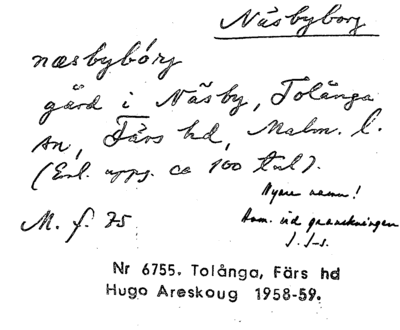 Näsbyborg
næsbybórg
gård i Näsby, Tolånga
sn, Färs hd, Malm. l.
(Enl. upps. ca 100 tnl).
Nyare namn!
Anm. vid granskningen
J. S-s.
M. f. 75
Nr 6755. Tolånga, Färs hd
Hugo Areskoug 1958-59.